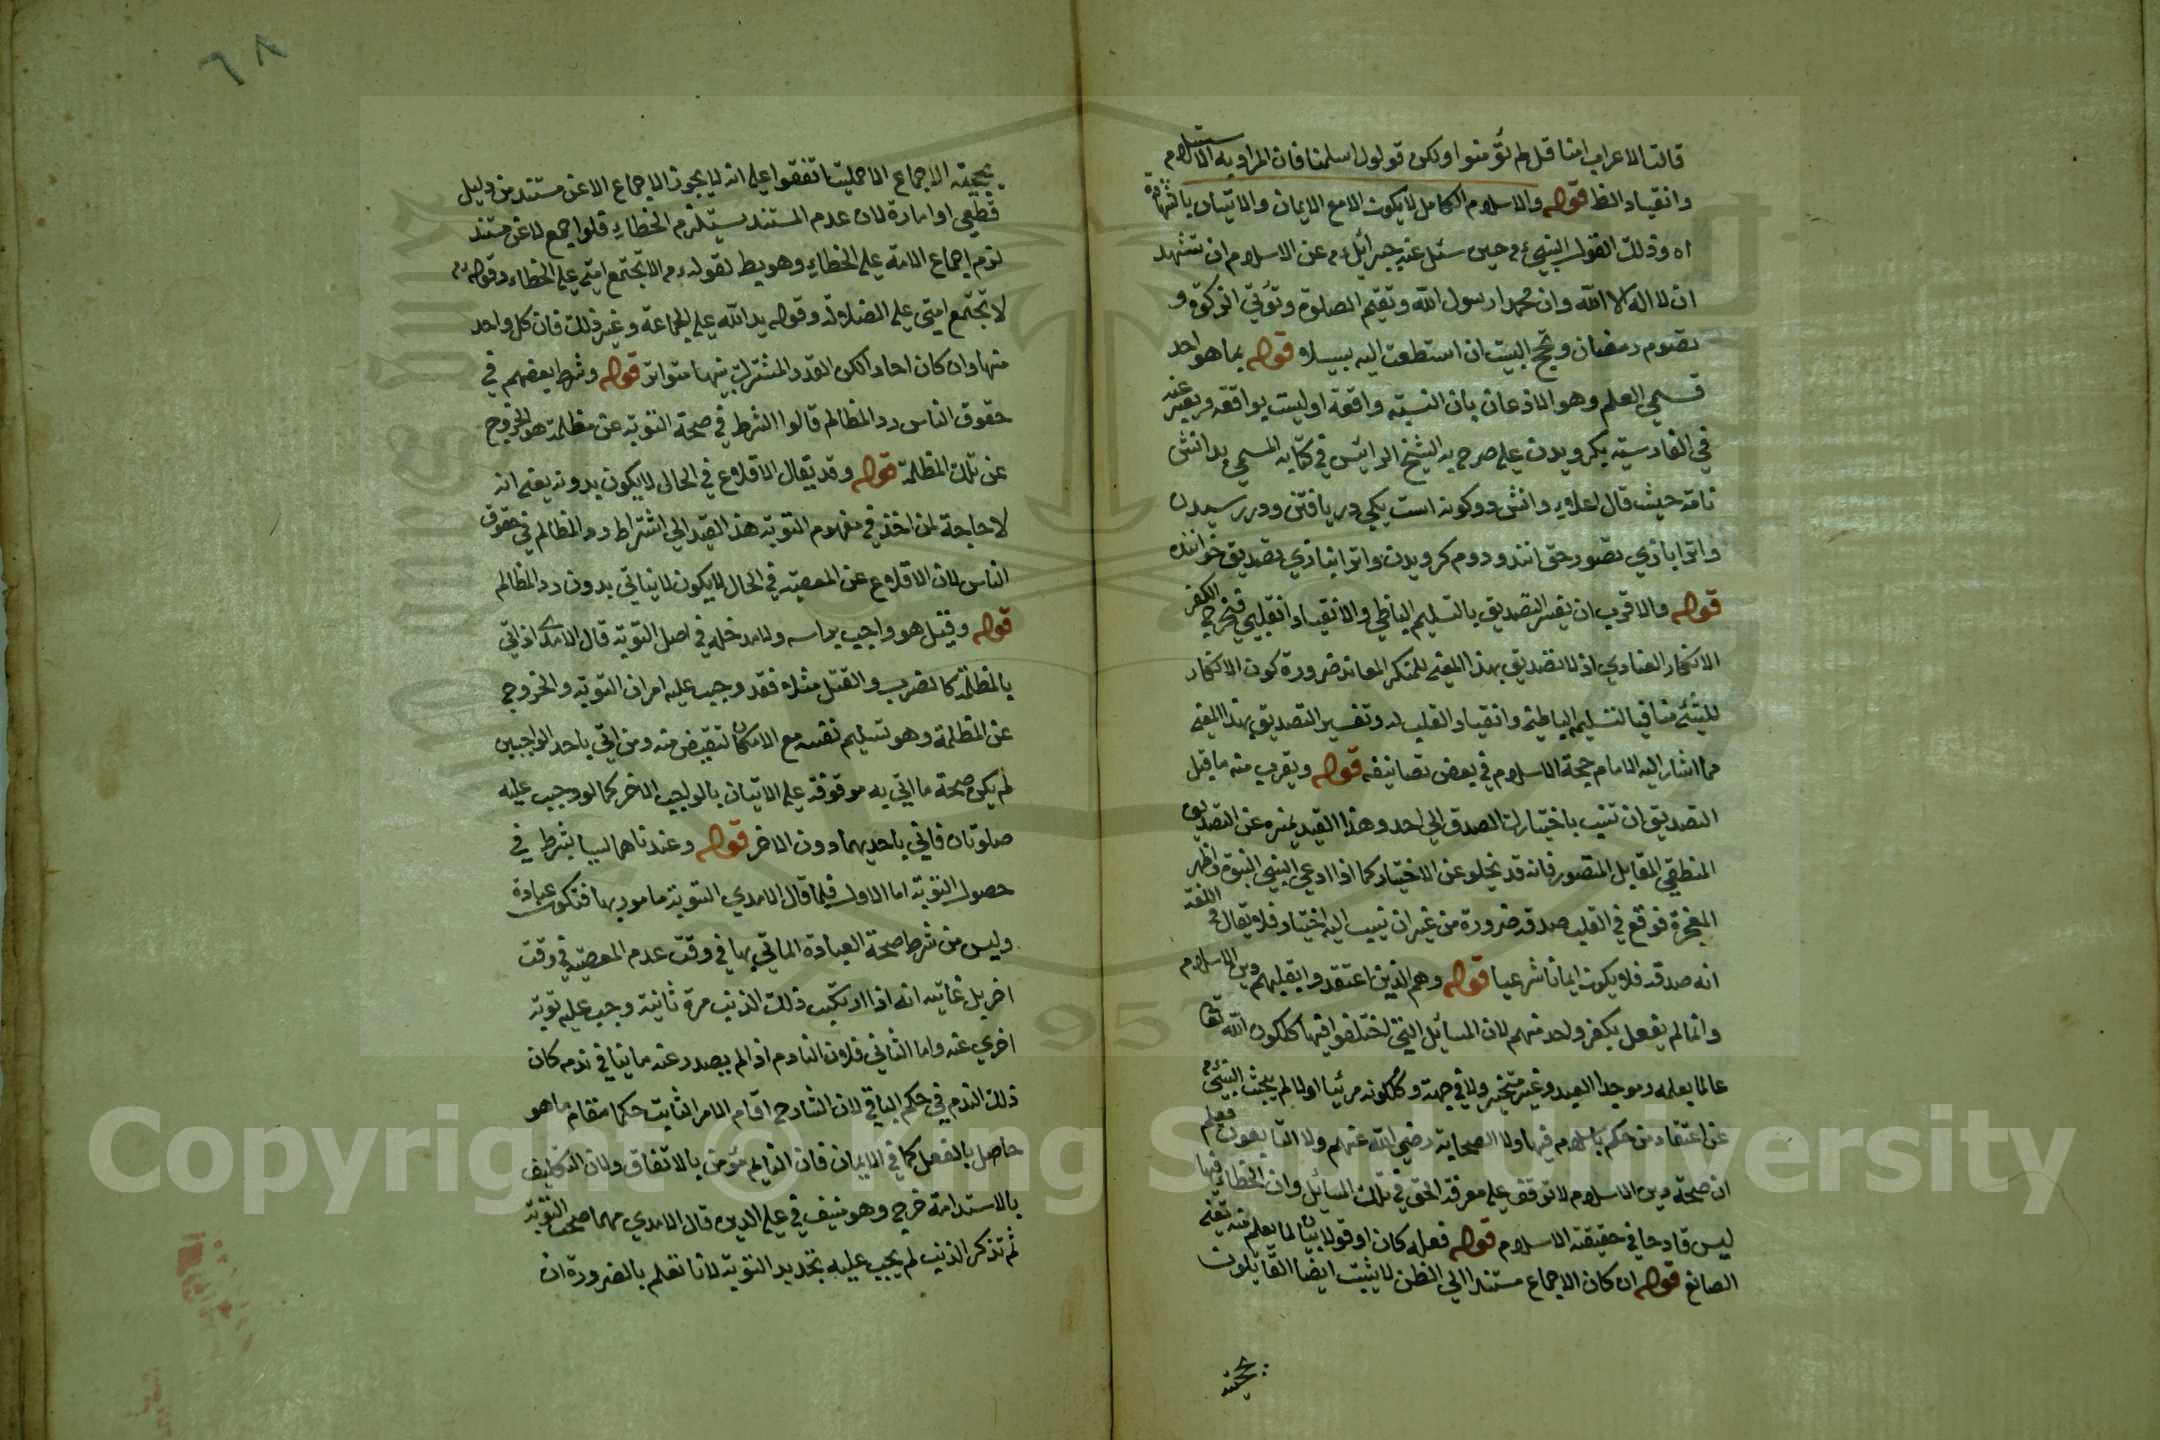 قالت الاعراب امنا قل لم تؤمنوا ولكن قولوا اسلمنا فان المراد به الاستسلام
وانقياد الظا قوله والاسلام الكامل لا يكون الا مع الايمان والاتيان بالشهادة
اه وذلك لقول النبي ء م حين سئل عنه جبرائل ء م عن الاسلام ان تشهد
ان لا اله الا الله وان محمدا رسول الله وتقيم الصلوة وتؤتي الزكوة و
تصوم رمضان وتحج البيت ان استطعت اليه سبيلا قوله بما هو احد
قسمي العلم وهو الاذعان بان النسبة واقعة او ليست بواقعة ويعبر عنه
في الفارسية بكرويدن على صرح به الشيخ الرائيس في كتابه المسمى بدانش
نامه حيث قال اعلاوه دانش دوكونه است يكي دريافتن ودررسيدن
واترا بتازي تصور حق انند ودوم كرويدن واترا بتازي تصديق خوانند
قوله والاقرب ان يفسر التصديق بالتسليم الباطي والانقياد القلبي فيخرج الكفر
الانكار العنادي اذ لا تصديق بهذا المعنى للمنكر المعاند ضرورة كون الانكار
للشئ منافيا لتسليم الباطني وانقياد القلب له وتفسير التصديق بهذا المعنى
مما اشار اليه الامام حجة الاسلام في بعض تصانيفه قوله ويقرب منه ما قيل
التصديق ان تنسب باختيارك الصدق الى احد وهذا القيد يميزه عن التصديق
المنطقي المقابل للتصور فانه قد يخلو عن الاختيار كما اذا ادعى النبي النبوة واظهر
المعجزة فوقع في القلب صدقه ضرورة من غير ان ينسب اليه اختيار فلا يقال في اللغة
انه صدقه فلا يكون ايمانا شرعيا قوله وهم الذين اعتقدوا بقلبهم دين الاسلام
وانما لم يفعل بكفر واحد منهم لان المسائل التي اختلفوا فيها ككون الله تعا
عالما بعلمه وموجدا لفعل العبد وغير متحيز ولا في جهة وككونه مرئيا اولا لم يبحث النبي ء م
عن اعتقاد من حكم باسلامه فيها ولا الصحابة رضي الله عنهم ولا التابعون فعلم
ان صحة دين الاسلام لا توقف على معرفة الحق في تلك المسائل وان الخطاء فيها
ليس قادحا في حقيقة الاسلام قوله فعله كان او قولا بيان لما يعلم منه تفي
الصانع قوله ان كان الاجماع مستندا الى الظن لا يثبت ايضا القايلون
بحجية
٦٨
بحجية الاجماع اتفقوا على انه لا يجوز الاجماع الا عن مستند من دليل
قطعي او امارة لان عدم المستند يستلزم الخطاء فلو اجمع لا عن مستند
لزم اجماع الامة على الخطاء وهو بط لقوله ء م لا تجتمع امتي على الخطاء وقوله ء م
لا تجتمع امتي على الضلالة وقوله يد الله على الجماعة وغير ذلك فان كل واحد
منها وان كان احادا لكن القدر المشترك بينها متواتر قوله وشرط بعضهم في
حقوق الناس رد المظالم قالوا الشرط في صحة التوبة عن مظلمة هو الخروج
عن تلك المظلمة قوله وقد يقال الاقلاع في الحال لا يكون بدونه يعني انه
لا حاجة لمن اخذ في مفهوم التوبة هذا القيد الى اشتراط رد المظالم في حقوق
الناس لان الاقلاع عن المعصية في الحال لا يكون لا يتأتي بدون رد المظالم
قوله وقيل هو واجب براسه ولا مدخل له في اصل التوبة قال الامدي اذ اتي
بالمظلمة كالضرب والقتل مثلا فقد وجب عليه امران التوبة والخروج
عن المظلمة وهو تسليم نفسه مع الامكان لتقتص منه ومن اتي باحد الواجبين
لم يكن صحة ما اتي به موقوفة على الاتيان بالواجب الاخر كما لو وجب عليه
صلوتان فاتي باحديهما دون الاخر قوله وعندنا هما ليسا بشرط في
حصول التوبة اما الاول فلما قال الامدي التوبة مامور بها فتكون عبادة
وليس من شرط صحة العبادة الماتي بها في وقت عدم المعصية في وقت
اخر بل غايته انه اذا ارتكب ذلك الذنب مرة ثانية وجب عليه توبة
اخري عنه واما الثاني فلان النادم اذا لم يصدر عنه ما ينافي ندمه كان
ذلك الندم في حكم الباقي لان الشارح اقام الامر الثابت حكما مقام ما هو
حاصل بالفعل كما في الايمان فان النايم مؤمن بالاتفاق ولان التكليف
بالاستدامة خرج وهو منيف في على الدين قال الامدي مهما صحت التوبة
ثم تذكر الذنب لم يجب عليه تجديد التوبة لانا نعلم بالضرورة ان
Copyright © King Saud University
1957